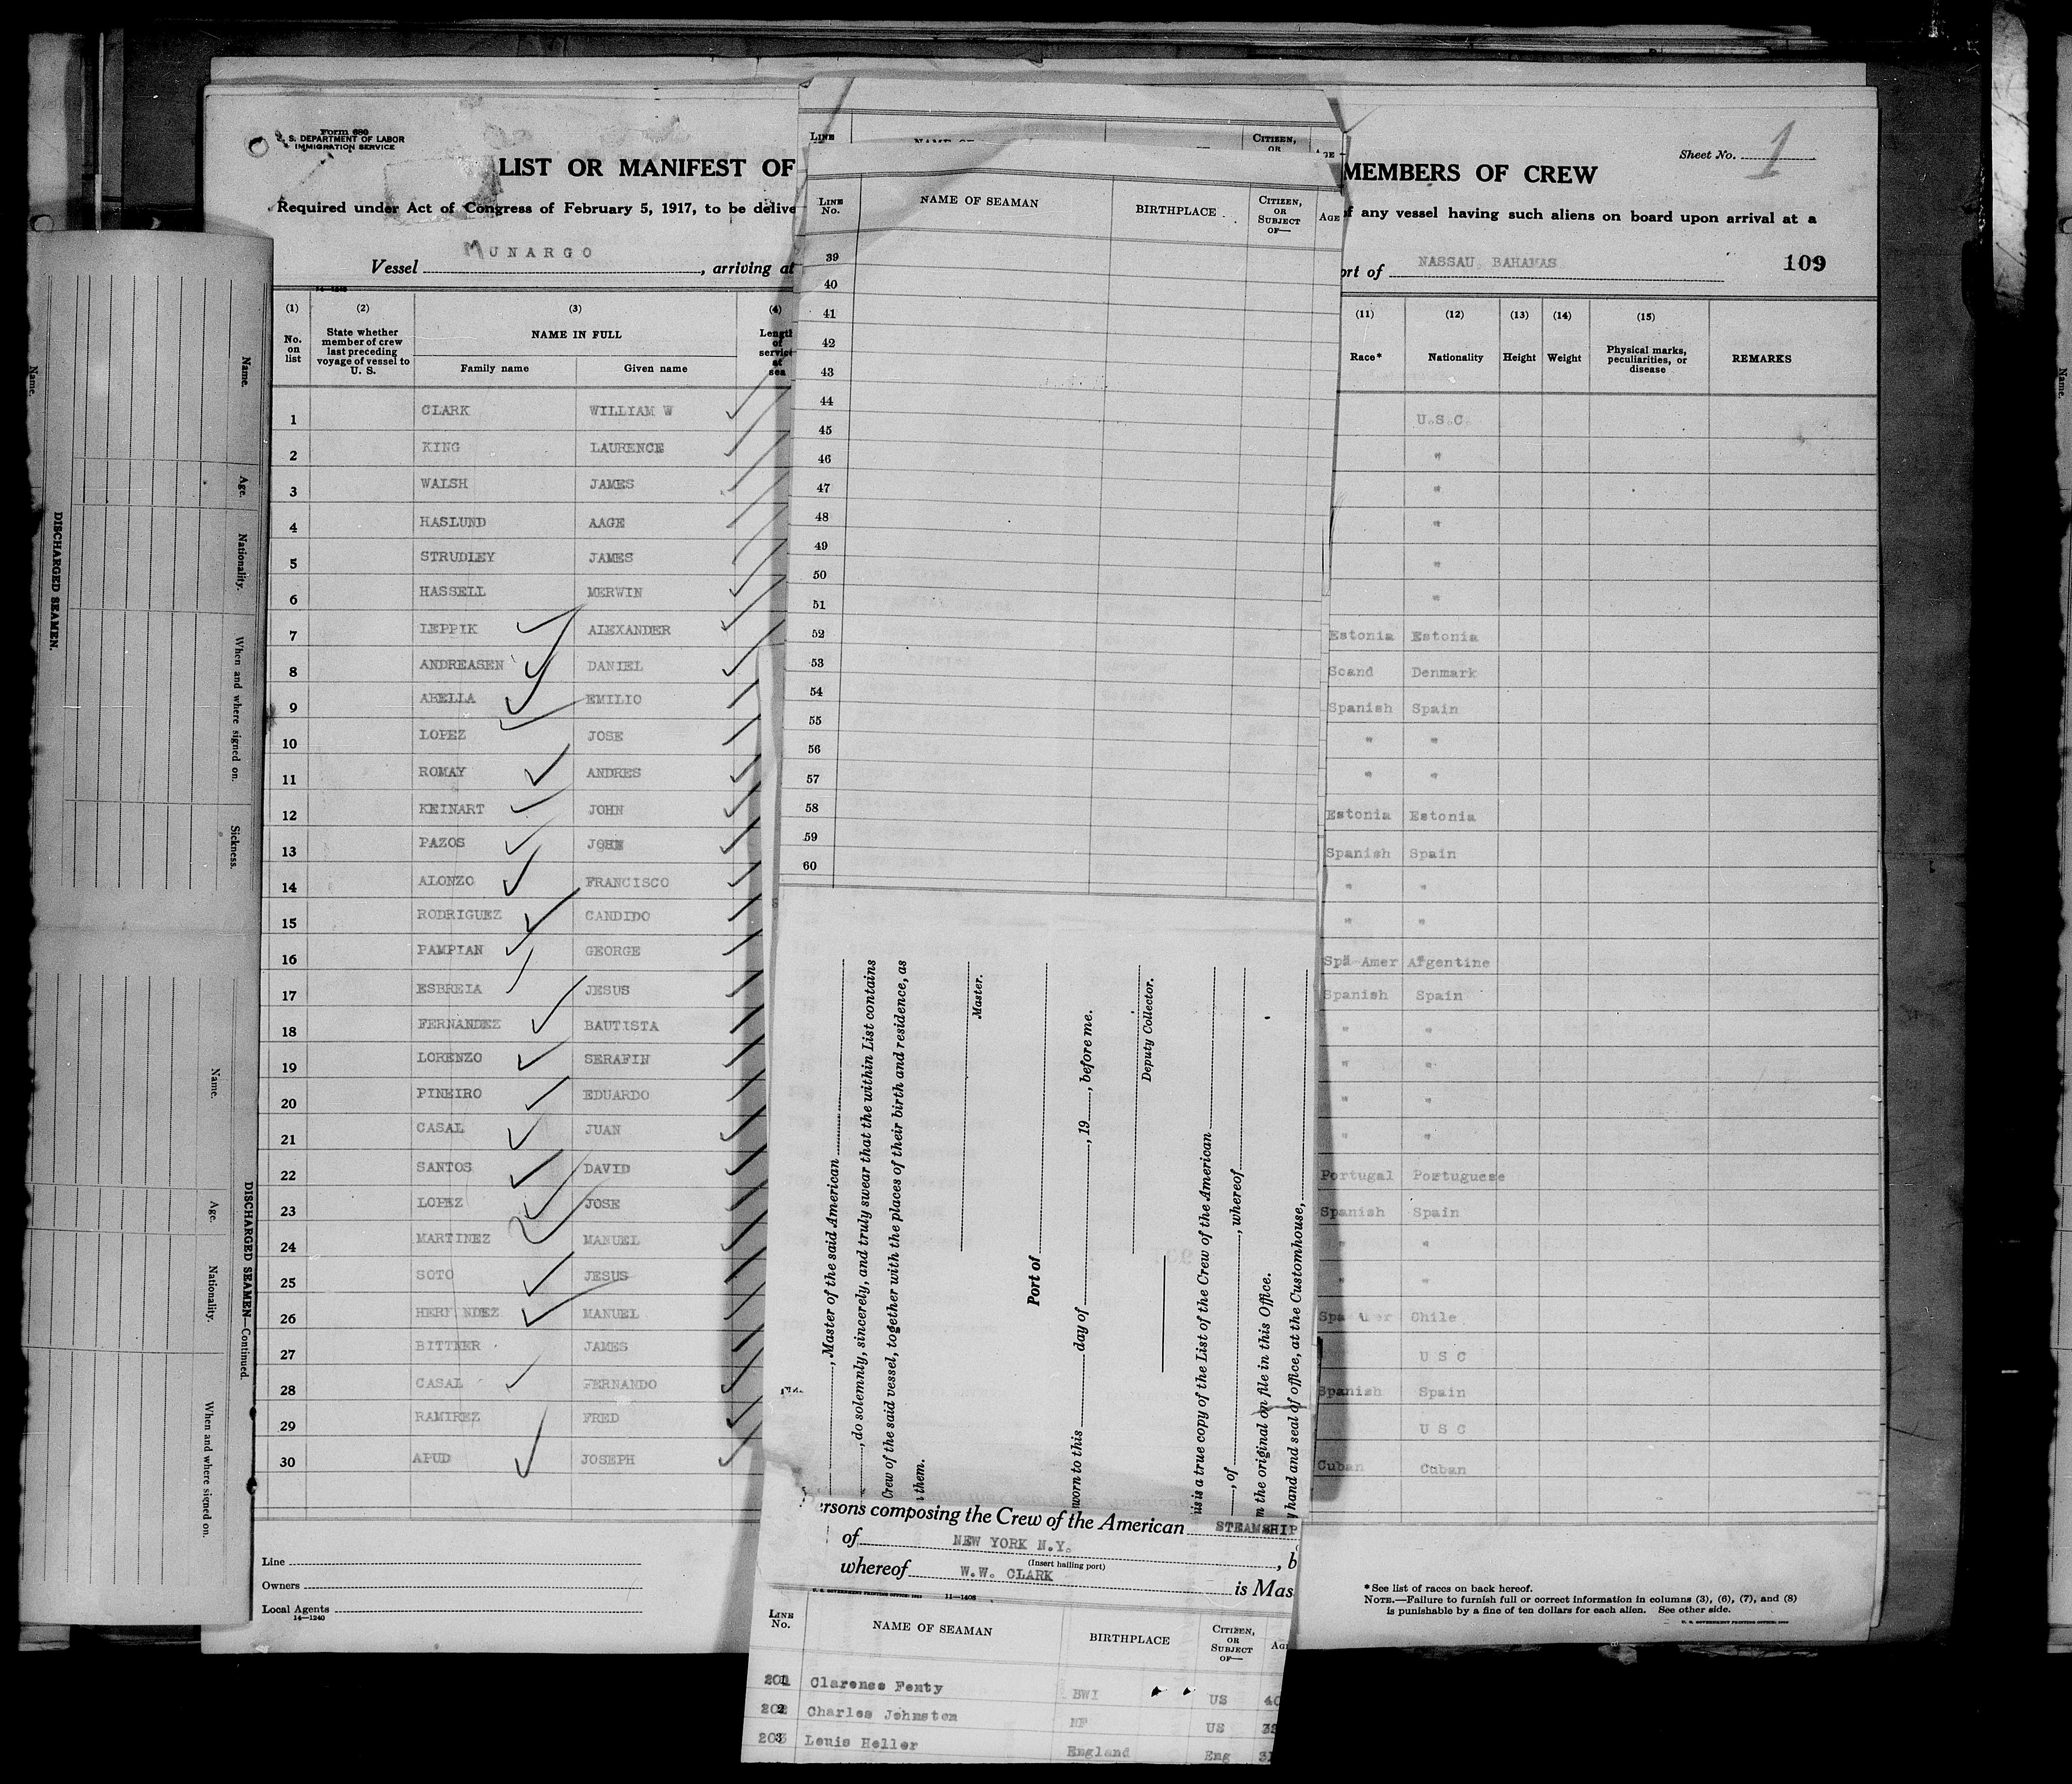 Form 680
U. S. DEPARTMENT OF LABOR
IMMIGRATION SERVICE
LIST OR MANIFEST OF
MEMBERS OF CREW
Sheet No. 1
Required under Act of Congress of February 5, 1917, to be delive
of any vessel having such aliens on board upon arrival at a
Vessel MUNARGO, arriving at
ort of NASSAU, BAHAMAS
109
14-1240
(1) (2) (3) (4) (11) (12) (13) (14) (15)
No. on list
State whether member of crew last preceding voyage of vessel to U. S.
NAME IN FULL
Family name Given name
Length of service at sea
Race* Nationality Height Weight
Physical marks, peculiarities, or disease
REMARKS
1 CLARK WILLIAM W U.S.C.
2 KING LAURENCE "
3 WALSH JAMES "
4 HASLUND AAGE "
5 STRUDLEY JAMES "
6 HASSELL MERWIN "
7 LEPPIK ALEXANDER Estonia Estonia
8 ANDREASEN DANIEL Scand Denmark
9 ABELLA EMILIO Spanish Spain
10 LOPEZ JOSE " "
11 ROMAY ANDRES " "
12 KEINART JOHN Estonia Estonia
13 PAZOS JOHN Spanish Spain
14 ALONZO FRANCISCO " "
15 RODRIGUEZ CANDIDO " "
16 PAMPIAN GEORGE Spa Amer Argentine
17 ESBREIA JESUS Spanish Spain
18 FERNANDEZ BAUTISTA " "
19 LORENZO SERAFIN " "
20 PINEIRO EDUARDO " "
21 CASAL JUAN " "
22 SANTOS DAVID Portugal Portuguese
23 LOPEZ JOSE Spanish Spain
24 MARTINEZ MANUEL " "
25 SOTO JESUS " "
26 HERF NDEZ MANUEL Spa Amer Chile
27 BITTNER JAMES U S C
28 CASAL FERNANDO Spanish Spain
29 RAMIREZ FRED U S C
30 APUD JOSEPH Cuban Cuban
Line
Owners
Local Agents
14-1240
*See list of races on back hereof.
NOTE.—Failure to furnish full or correct information in columns (3), (6), (7), and (8)
is punishable by a fine of ten dollars for each alien. See other side.
U. S. GOVERNMENT PRINTING OFFICE
LINE
CITIZEN, OR
LINE No. NAME OF SEAMAN BIRTHPLACE CITIZEN, OR SUBJECT OF— AGE
39
40
41
42
43
44
45
46
47
48
49
50
51
52
53
54
55
56
57
58
59
60
, Master of the said American
, do solemnly, sincerely, and truly swear that the within List contains
Crew of the said vessel, together with the places of their birth and residence, as
them.
Master.
Port of
worn to this day of , 19 , before me.
Deputy Collector.
is is a true copy of the List of the Crew of the American
, of , whereof
m the original on file in this Office.
y hand and seal of office, at the Customhouse,
ersons composing the Crew of the American STEAMSHIP
of NEW YORK N.Y. , b
(Insert hailing port)
whereof W.W. CLARK is Mas
U. S. GOVERNMENT PRINTING OFFICE 11-1408
LINE No. NAME OF SEAMAN BIRTHPLACE CITIZEN, OR SUBJECT OF— AGE
201 Clarence Fenty BWI US 40
202 Charles Johnston NF US
203 Louis Heller England Eng
DISCHARGED SEAMEN.
Name. Age. Nationality. When and where signed on. Sickness.
DISCHARGED SEAMEN—Continued.
Name. Age. Nationality. When and where signed on.
Name.
Name.